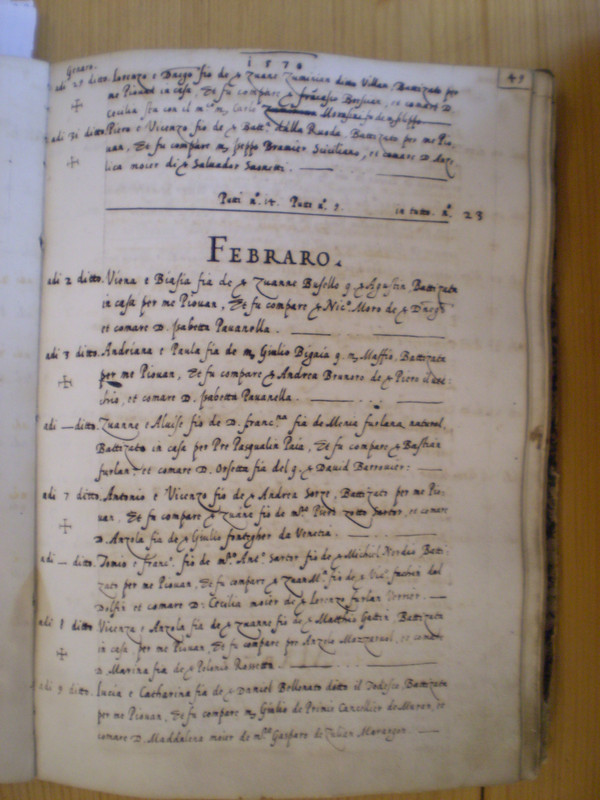 1570
49
Genaro.
adi 29 ditto. Lorenzo e Dnego fio de Zuane Zuminian ditto Villan, Battizato per
me Piouan in casa, Et fu compare Francesco Bressan, et comare D.
Cecilia sta con il m.co m. Carlo
adi 31 ditto. Piero e Vicenzo fio de Batt.a dalla Ruoda. Battizato per me Pio,
uan, Et fu compare m. Peppo Bramier Siciliano, et comare D. Anze,
lica moier di Saluador
Puti n.o 14. Pute n.o 9. in tutto. n.o 23
FEBRARO.
adi 2 ditto. Viena e Biasia fia de Zuanne Busello q. Agustin Battizata
in casa per me Piouan, Et fu compare Nic.o Moro de Dnego
et comare D. Isabetta Pauanella.
adi 3 ditto. Andriana e Paula fia de m. Giulio Bigaia q. m. Maffio, Battizata
per me Piouan, Et fu compare Andrea Brunoro de Piero il uec-
chio, et comare D. Isabetta Pauanella.
adi — ditto. Zuanne e Aluise fio de D. Franc.na fia de Menia furlana, natural,
Battizato in casa per Pre Pasqualin Paia, Et fu compare Bastian
furlan, et comare D. Orsetta fia del q. Dauid Barrouier:
adi 7 ditto. Antonio e Vicenzo fio de Andrea Sorze, Battizato per me Pio-
uan, Et fu compare Zuane fio de m.o Piero zotto Sartor, et comare
D. Anzola fia de Giulio fontegher da Venetia.
adi — ditto. Tomio e franc.o fio de m.o Ant.o Sartor fio de Michiel Nordio Batti-
zato per me Piouan, Et fu compare Zuan M.a fio de Vic.o fachin dal
Dolfin et comare D: Cecilia moier de Lorenzo furlan Verrier.
adi 8 ditto Vicenza e Anzola fia de Zuanne fio de Matthio Gattin, Battizata
in casa per me Piouan, Et fu compare per Anzolo Mozzatuol, et comare
D. Marina fia de Polonio Rossetto
adi 9 ditto. Lucia e Catharina fia de Daniel Bellonato ditto il Todesco, Battizata
per me Piouan, Et fu compare m. Giulio de Primis Cancellier de Muran, et
comare D. Maddalena moier de m.o Gasparo de Zulian Marangon.